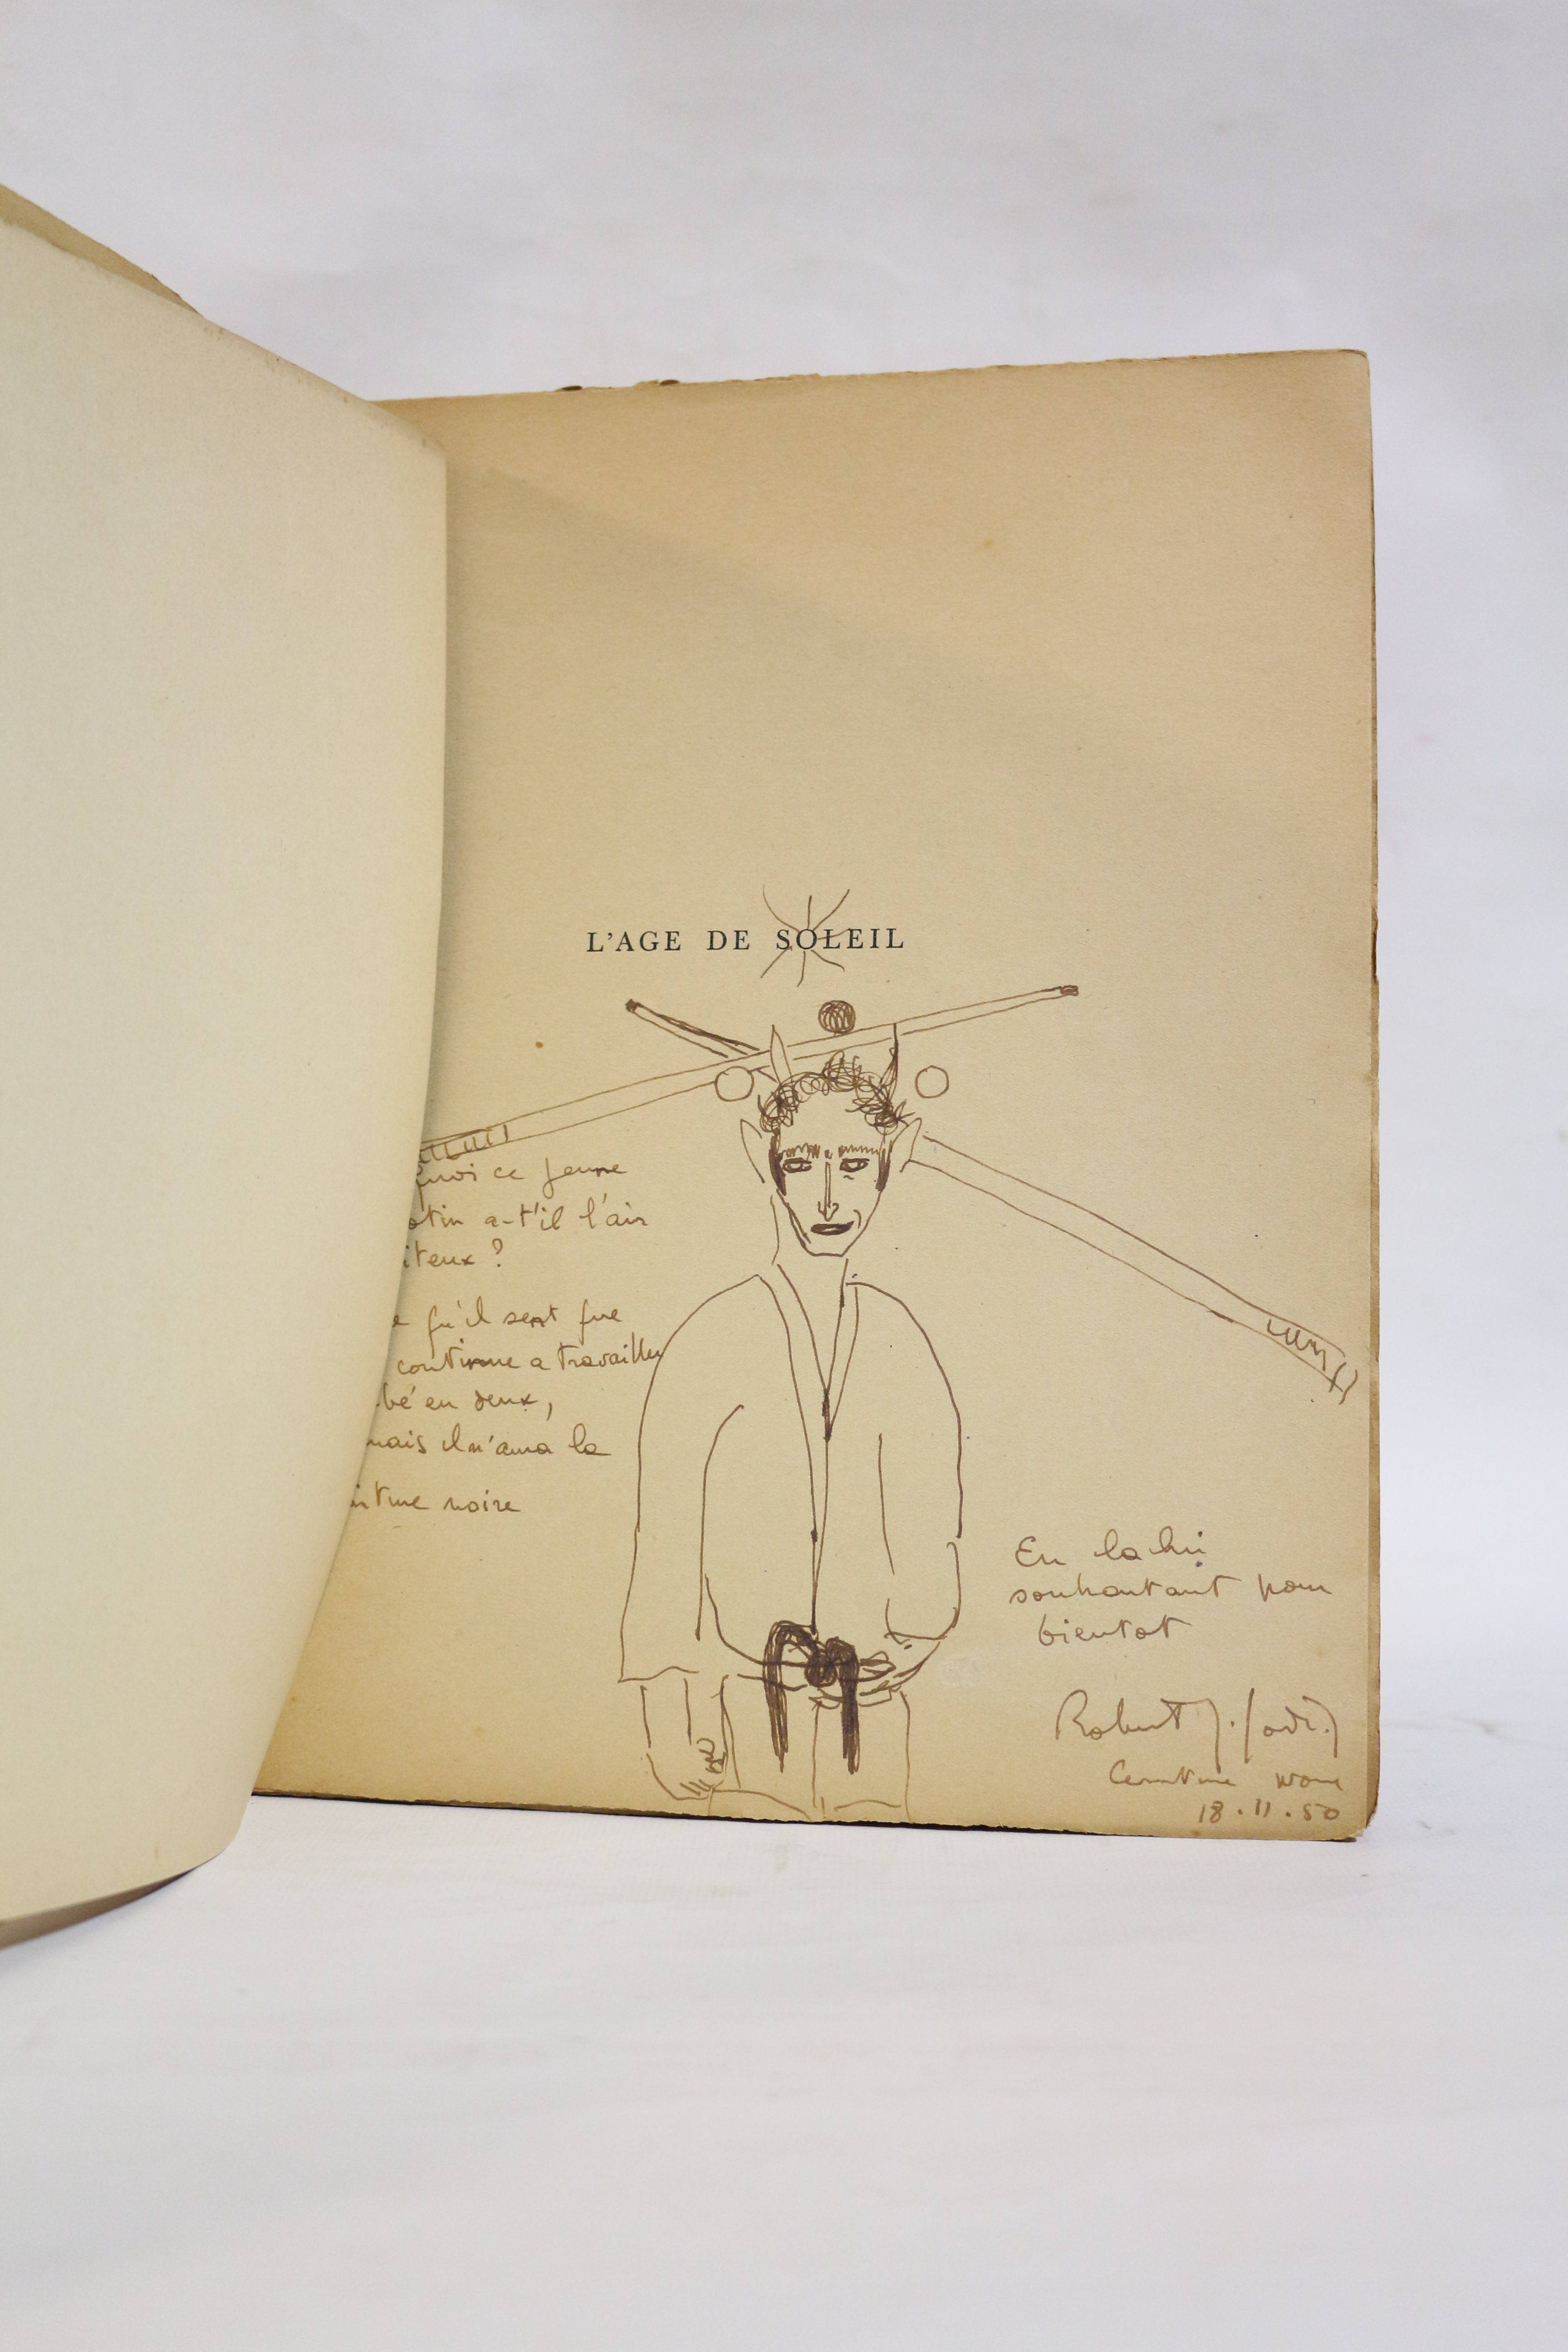 L'AGE DE SOLEIL
quoi ce jeune
otin a-t'il l'air
iteux ?
e qu'il sent que
continue a travailler
bé en deux,
mais il n'aura la
inture noire
En la lui
souhaitant pour
bientot
Robert J. Godet
Ceinture noire
18.11.50